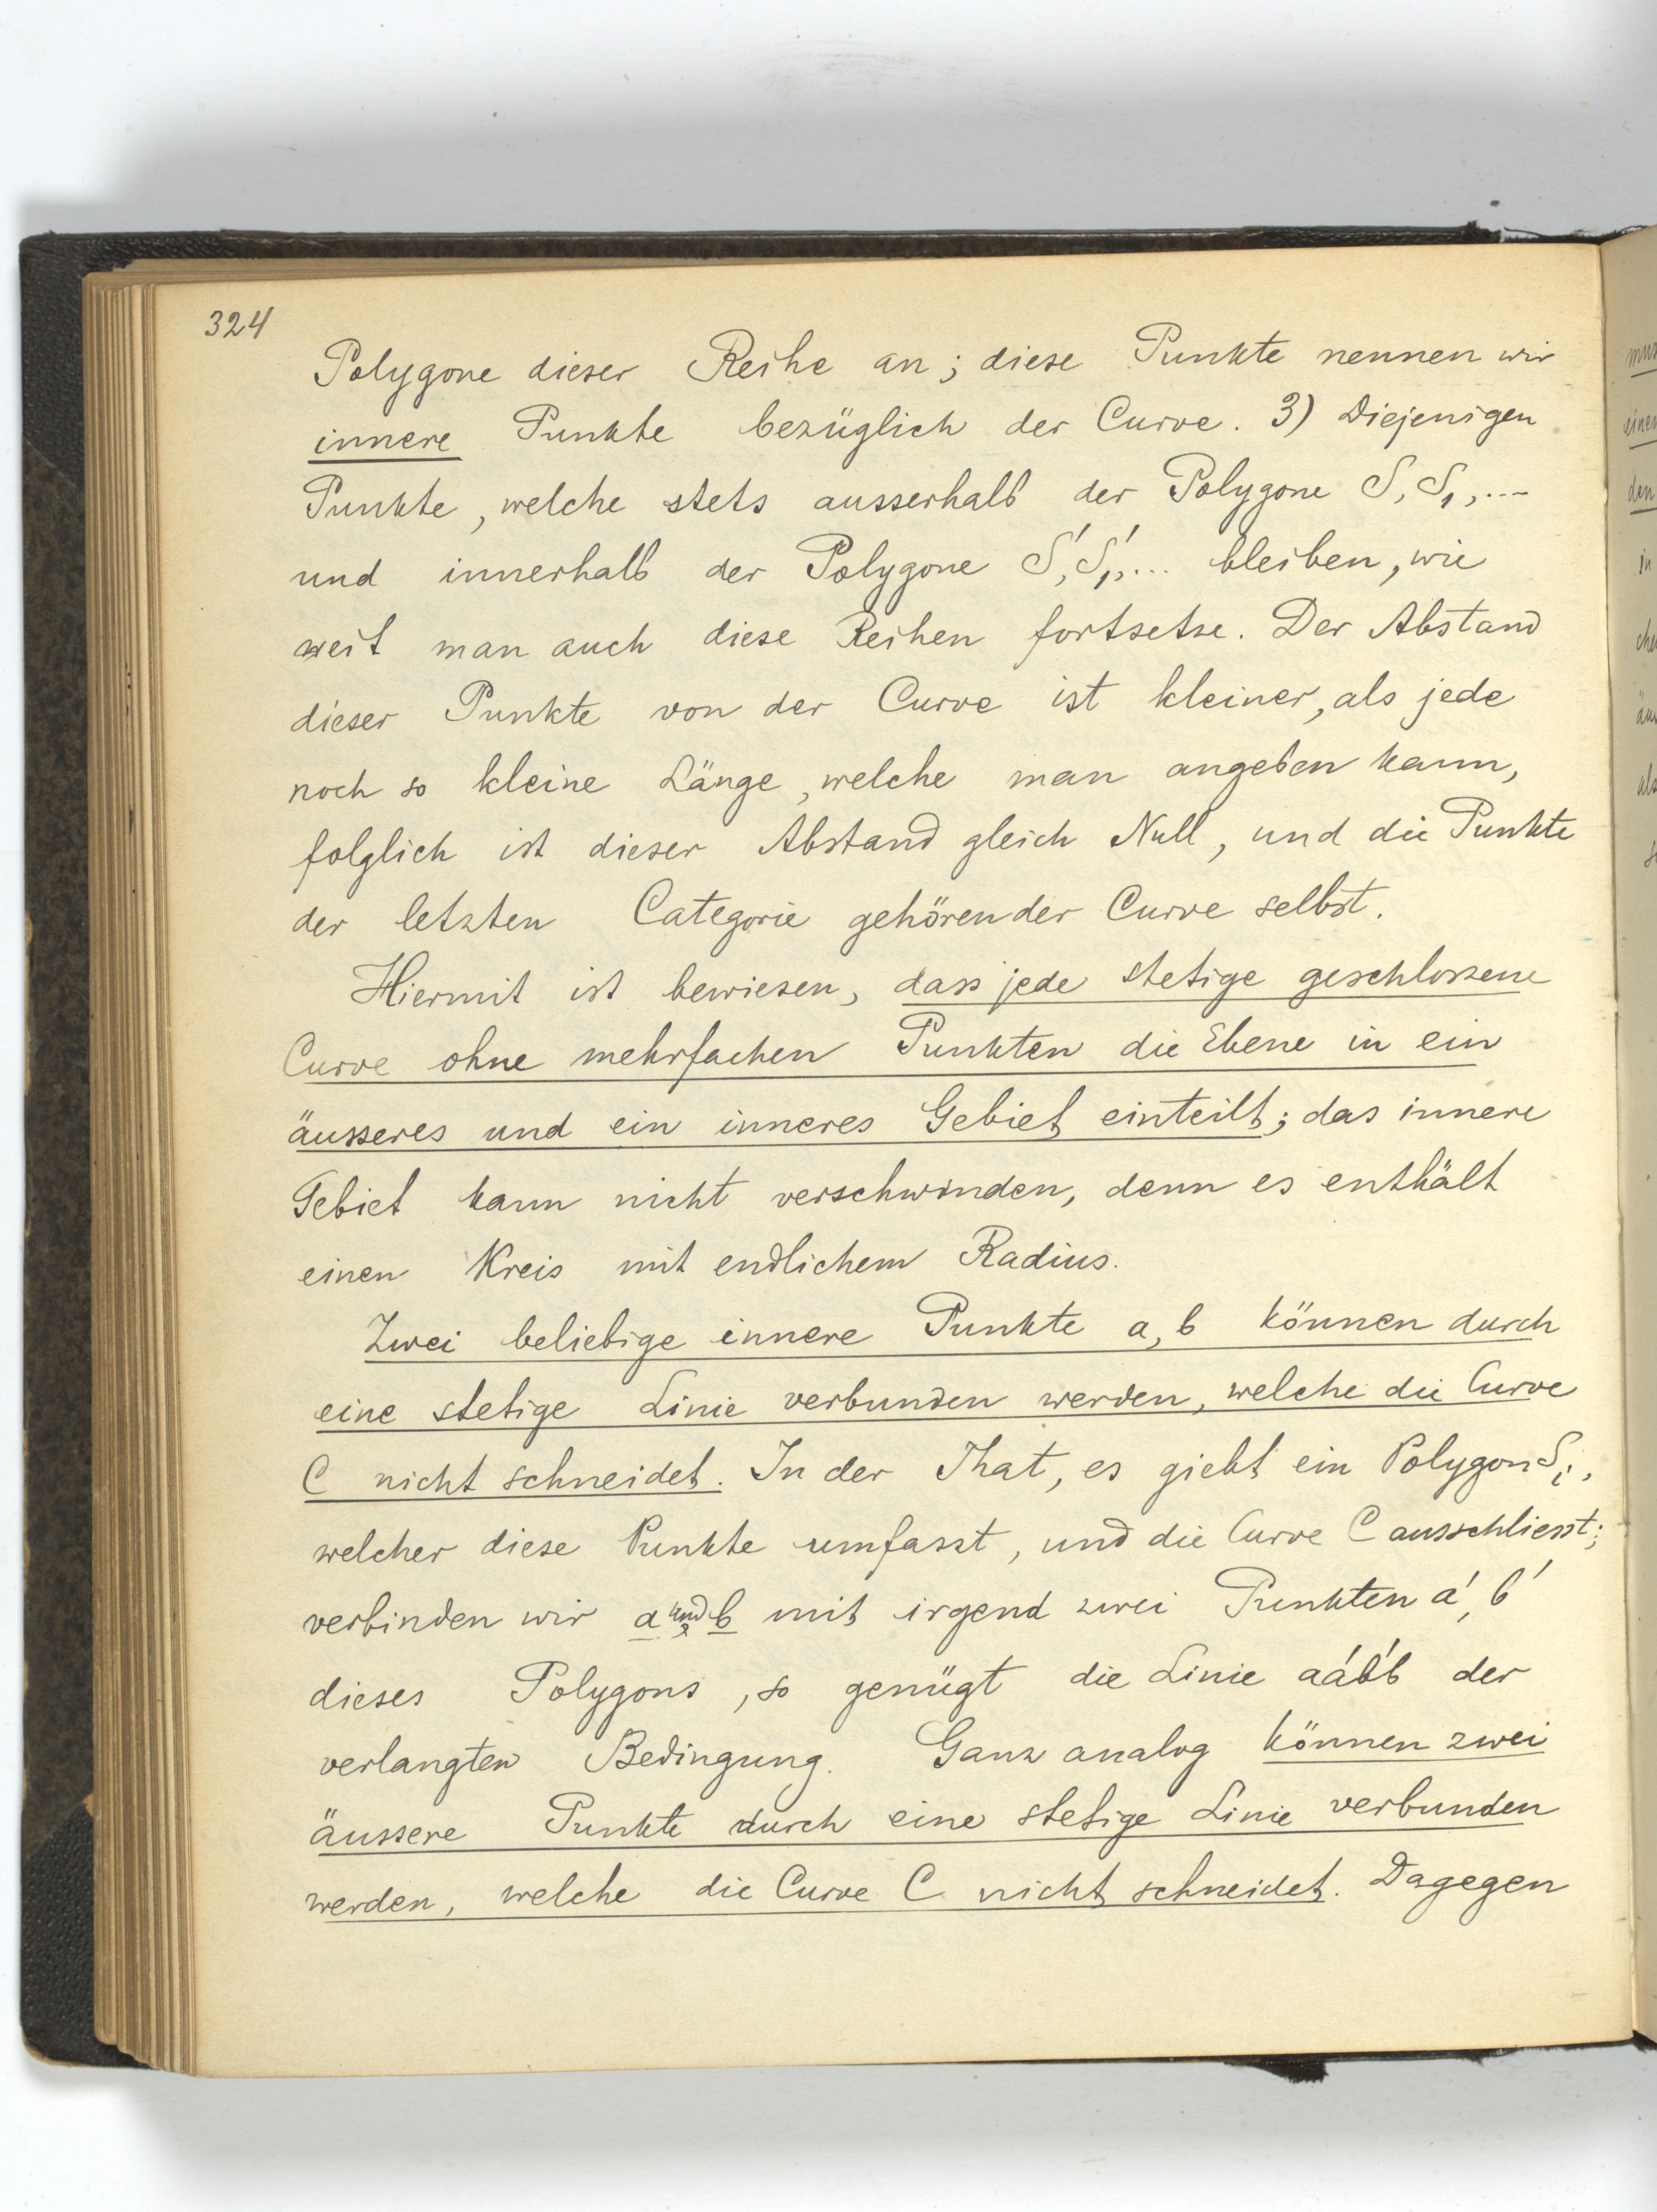 324
Polygone dieser Reihe an; diese Punkte nennen wir
innere Punkte bezüglich der Curve. 3) Diejenigen
Punkte, welche stets ausserhalb der Polygone S, S₁, ...
und innerhalb der Polygone S', S₁', ... bleiben, wie
weit man auch diese Reihen fortsetze. Der Abstand
dieser Punkte von der Curve ist kleiner, als jede
noch so kleine Länge, welche man angeben kann,
folglich ist dieser Abstand gleich Null, und die Punkte
der letzten Categorie gehören der Curve selbst.
Hiermit ist bewiesen, dass jede stetige geschlossene
Curve ohne mehrfachen Punkten die Ebene in ein
äusseres und ein inneres Gebiet einteilt; das innere
Gebiet kann nicht verschwinden, denn es enthält
einen Kreis mit endlichem Radius.
Zwei beliebige innere Punkte a, b können durch
eine stetige Linie verbunden werden, welche die Curve
C nicht schneidet. In der That, es giebt ein Polygon Sᵢ,
welcher diese Punkte umfasst, und die Curve C ausschliesst;
verbinden wir a und b mit irgend zwei Punkten a', b'
dieses Polygons, so genügt die Linie aa'b'b der
verlangten Bedingung. Ganz analog können zwei
äussere Punkte durch eine stetige Linie verbunden
werden, welche die Curve C nicht schneidet. Dagegen